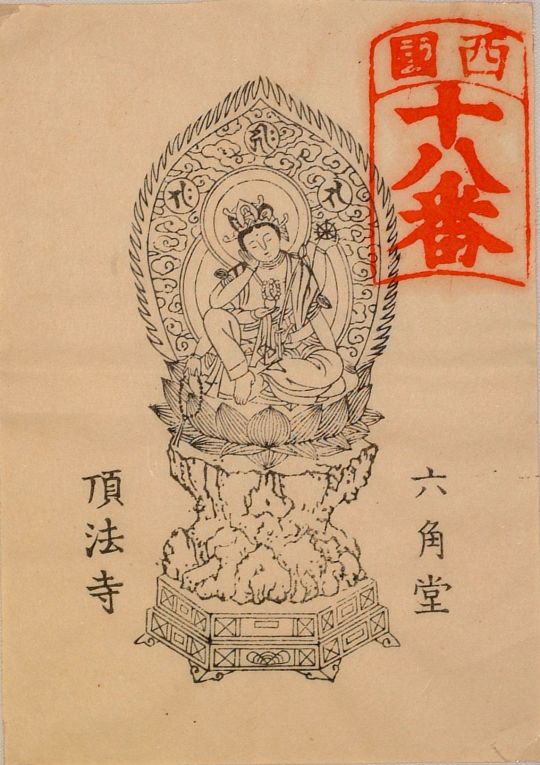 西國
十八番
六角堂
頂法寺